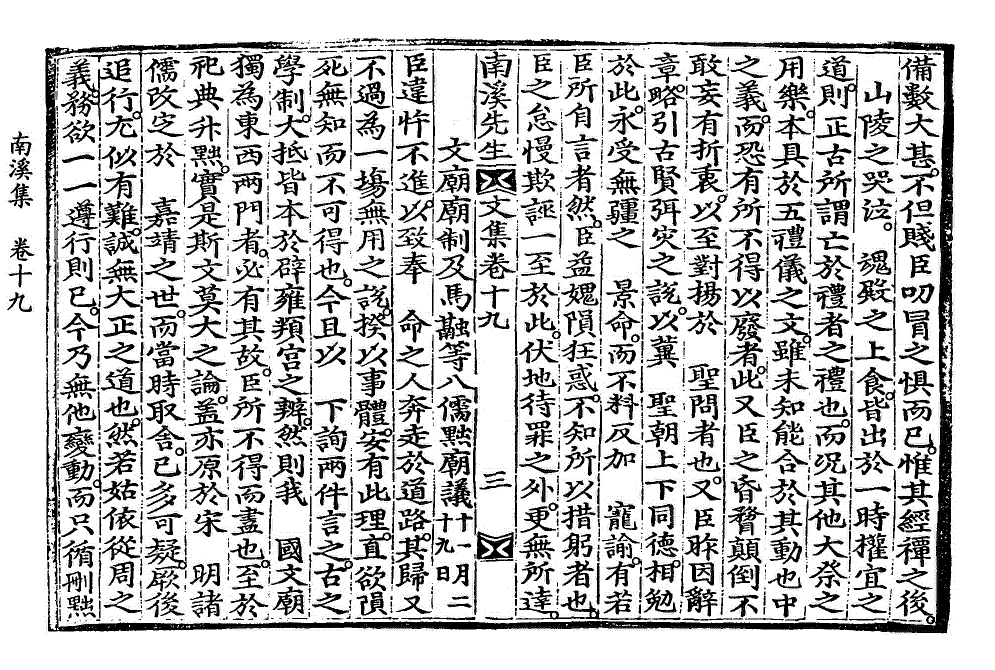 備數大甚。不但賤臣叨冒之惧而已。惟其經禫之後。
山陵之哭泣。 魂殿之上食。皆出於一時權宜之
道。則正古所謂亡於禮者之禮也。而况其他大祭之
用樂。本具於五禮儀之文。雖未知能合於其動也中
之義。而恐有所不得以廢者。此又臣之昏瞀顚倒不
敢妄有折衷。以至對揚於 聖問者也。又臣昨因辭
章。略引古賢弭灾之說。以冀 聖朝上下同德。相勉
於此。永受無疆之 景命。而不料反加 寵諭。有若
臣所自言者然。臣益媿隕狂惑。不知所以措躬者也。
臣之怠慢欺誣一至於此。伏地待罪之外。更無所達。
南溪先生文集卷十九 三
文廟廟制及馬融等八儒黜廟議十一月二十九日
臣違忤不進。以致奉 命之人奔走於道路。其歸又
不過為一塲無用之說。揆以事體。安有此理。直欲隕
死無知而不可得也。今且以 下詢兩件言之。古之
學制。大抵皆本於辟雍頖宮之辨。然則我 國文廟
獨為東西兩門者。必有其故。臣所不得而盡也。至於
祀典升黜。實是斯文莫大之論。盖亦原於宋 明諸
儒改定於 嘉靖之世。而當時取舍。已多可疑。厥後
追行。尤似有難。誠無大正之道也。然若姑依從周之
義。務欲一一遵行則已。今乃無他變動。而只循刪黜
南溪集 卷十九